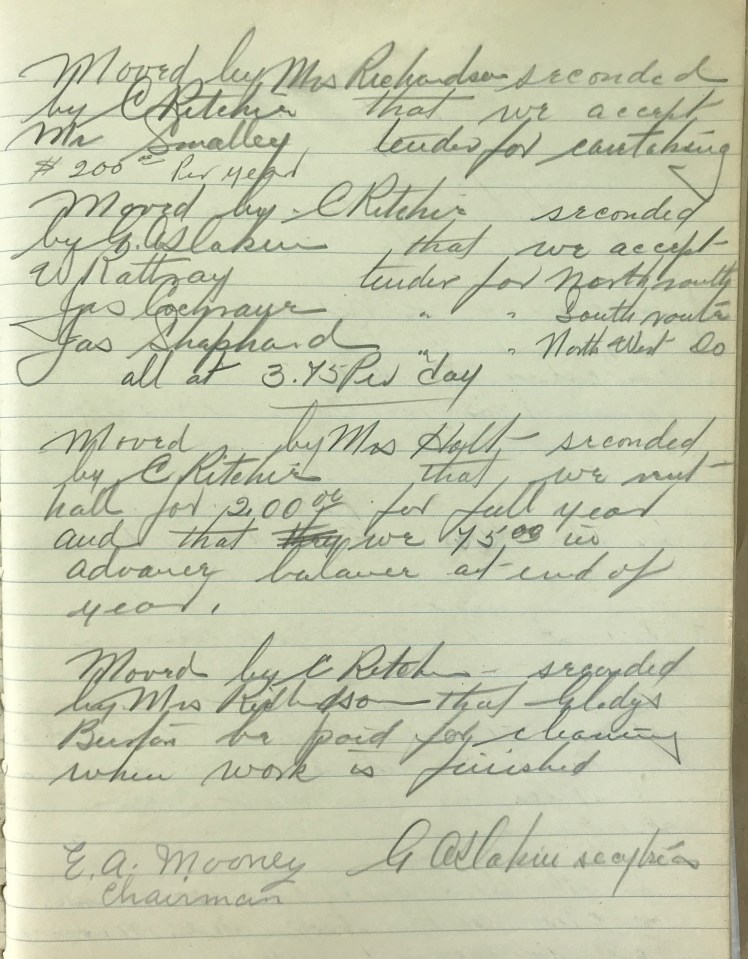 Moved by Mrs Richardson seconded
by C Ritchie that we accept
Mr Smalley tender for caretaking
$200.00 Per year
Moved by C Ritchie seconded
by G. Aslakin that we accept
W Rattray tender for North route
Jas Cochrayr " " South route
Jas Shaphard " " North West Do
all at 3.75 Per day
Moved by Mrs Holt seconded
by C Ritchie that we rent
hall for 200.00 for full year
and that we 75.00 in
advance balance at end of
year.
Moved by C Ritchie seconded
by Mrs Richardson that Gladys
Burton be paid for cleaning
when work is finished
E.A. Mooney G Aslakin
Chairman